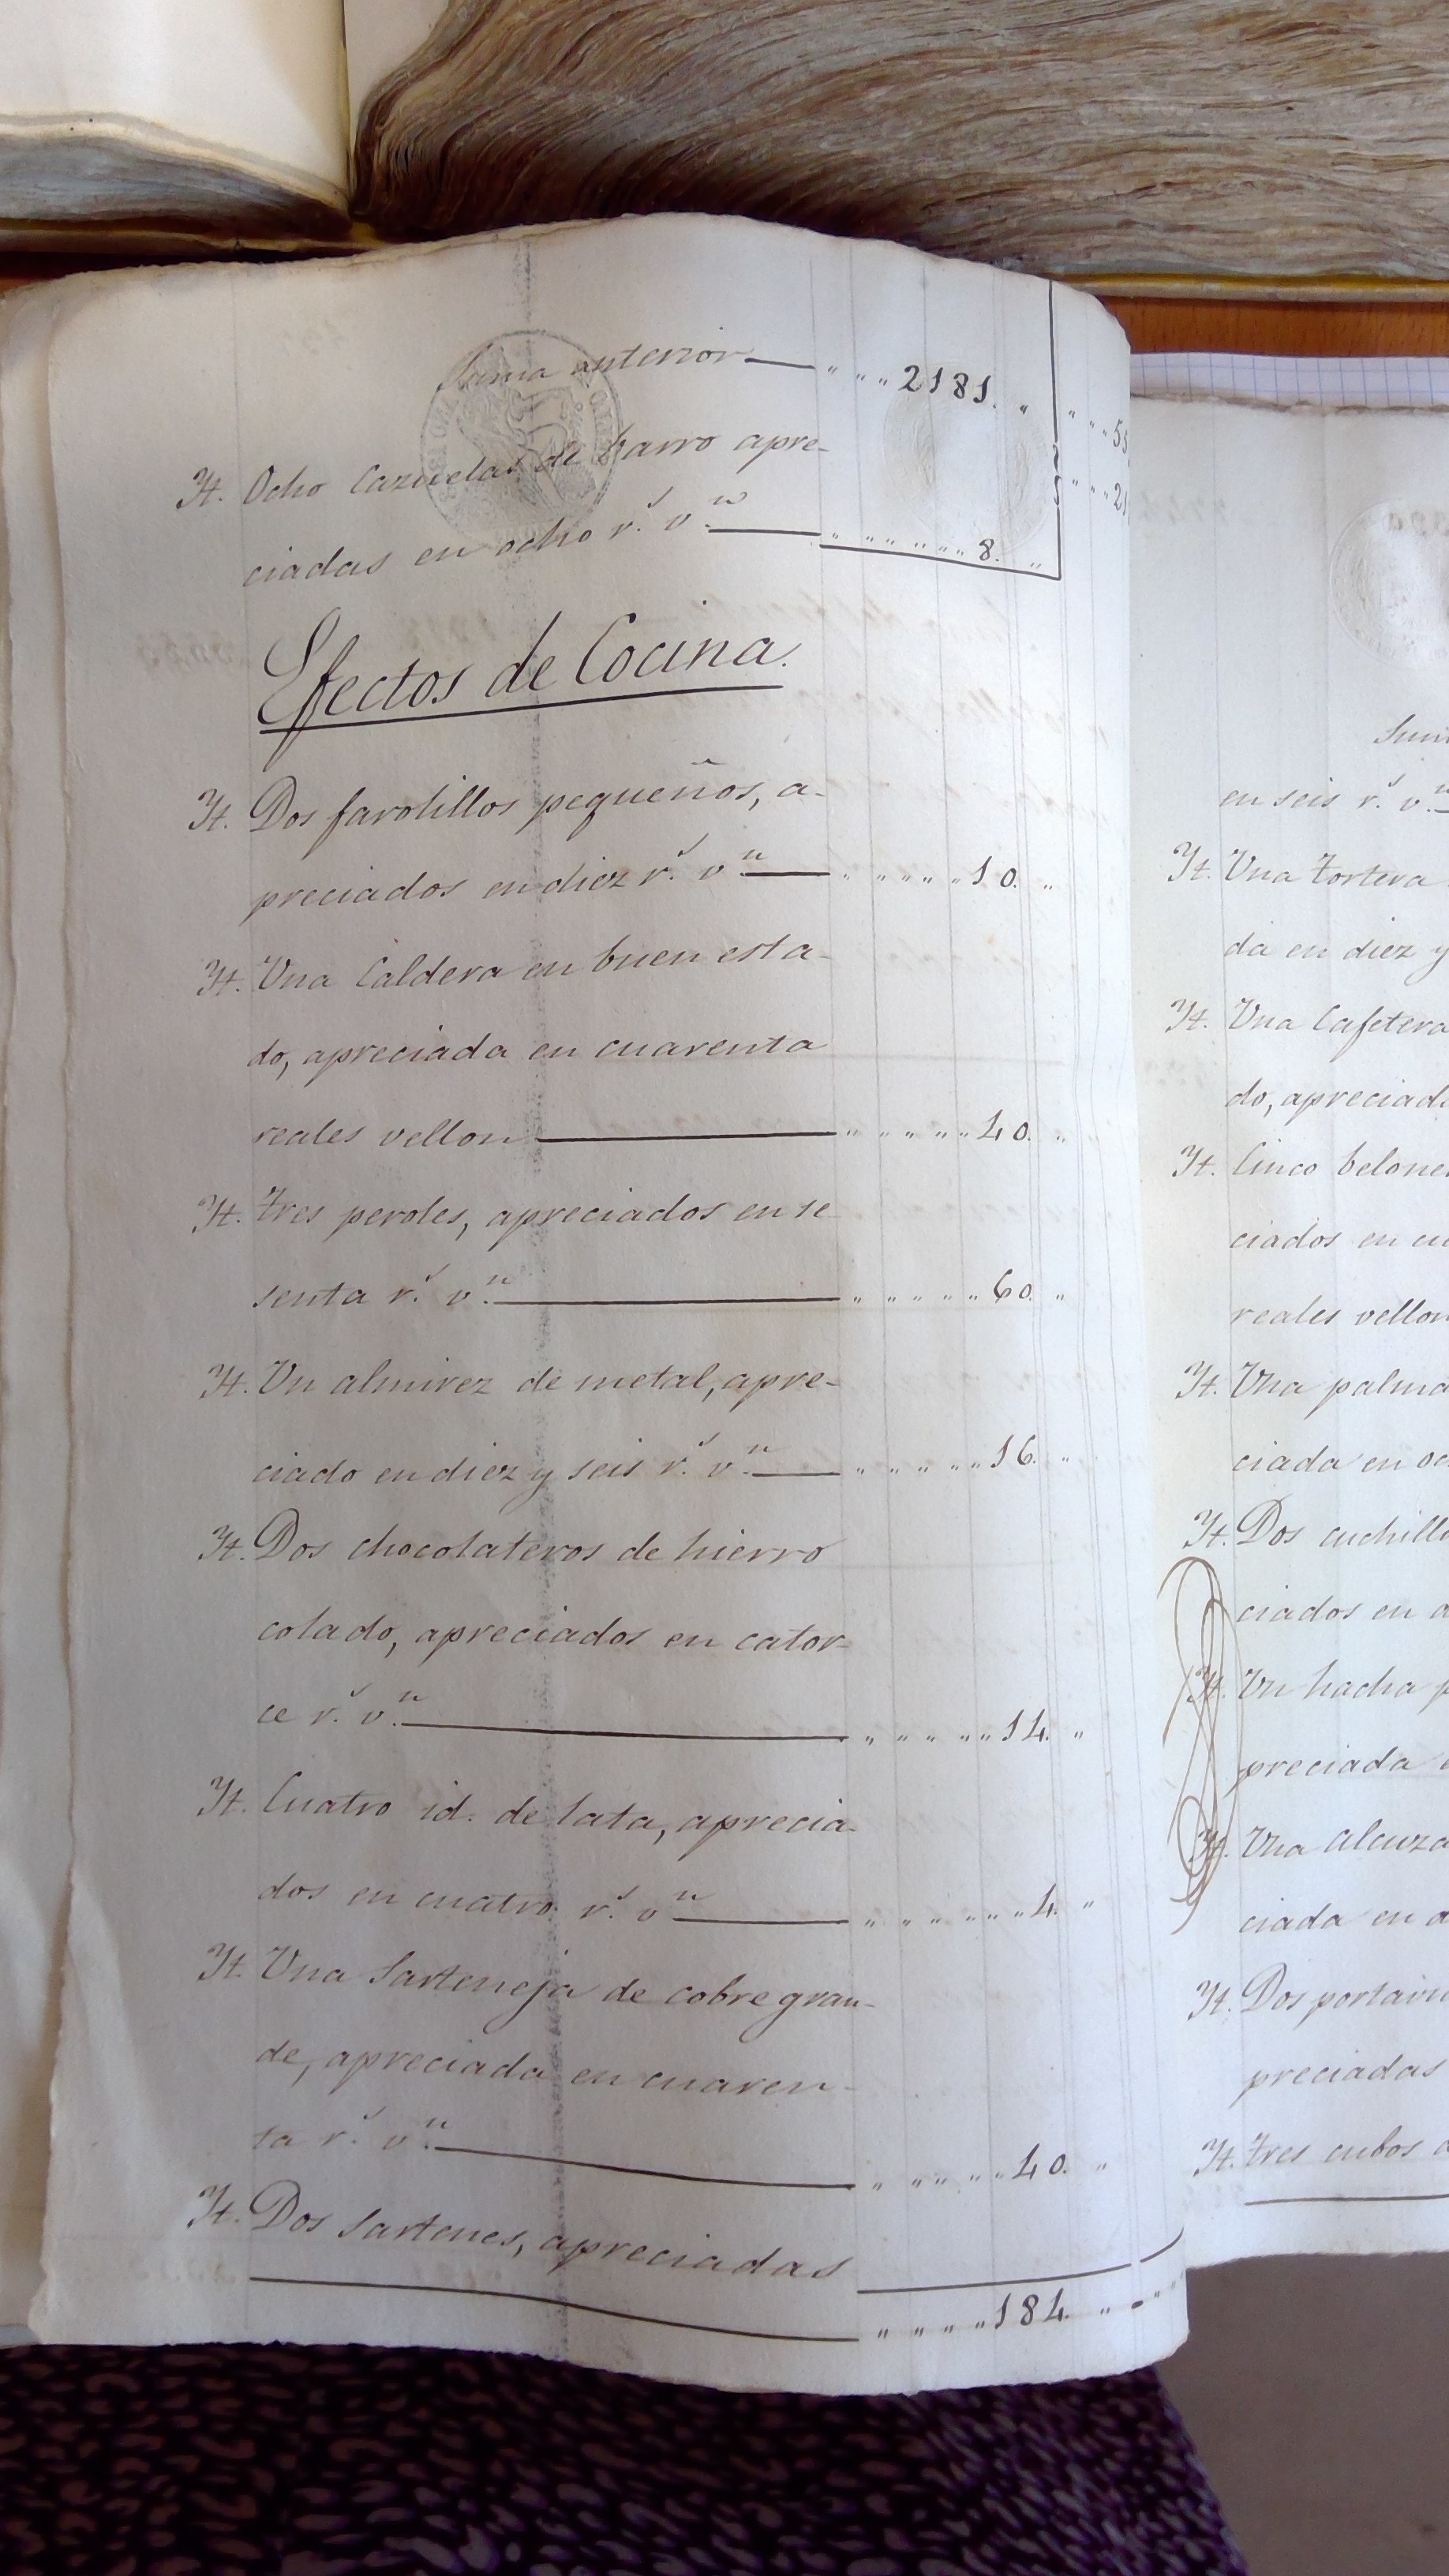 Suma anterior „ „ „ 2181. „ „ „ „ 55
„ „ „ 21
Yt. Ocho Cazuelas de barro apre-
ciadas en ocho r.s v.n „ „ „ „ „ „ 8. „
Efectos de Cocina.
Yt. Dos farolillos pequeños, a-
preciados en diez r.s v.n „ „ „ „ „ 10. „
Yt. Una Caldera en buen esta-
do, apreciada en cuarenta
reales vellon „ „ „ „ „ 40. „
Yt. tres peroles, apreciados en se
senta r.s v.n „ „ „ „ „ 60. „
Yt. Un almirez de metal, apre-
ciado en diez y seis r.s v.n „ „ „ „ „ 16. „
Yt. Dos chocolateros de hierro
colado, apreciados en cator-
ce r.s v.n „ „ „ „ „ 14. „
Yt. Cuatro id. de lata, aprecia-
dos en cuatro r.s v.n „ „ „ „ „ „ 4. „
Yt. Una Sarteneja de cobre gran-
de, apreciada en cuaren-
ta r.s v.n „ „ „ „ „ 40. „
Yt. Dos Sartenes, apreciadas
„ „ „ „ 184. „
Sum
en seis r.s v.n
Yt. Una tortera
da en diez y
Yt. Una Cafetera
do, apreciad
Yt. Cinco belone
ciados en cu
reales vellon
Yt. Una palma
ciada en oc
Yt. Dos cuchill
ciados en d
Yt. Un hacha p
preciada
Yt. Una alcuza
ciada en d
Yt. Dos portavi
preciadas
Yt. tres cubos d